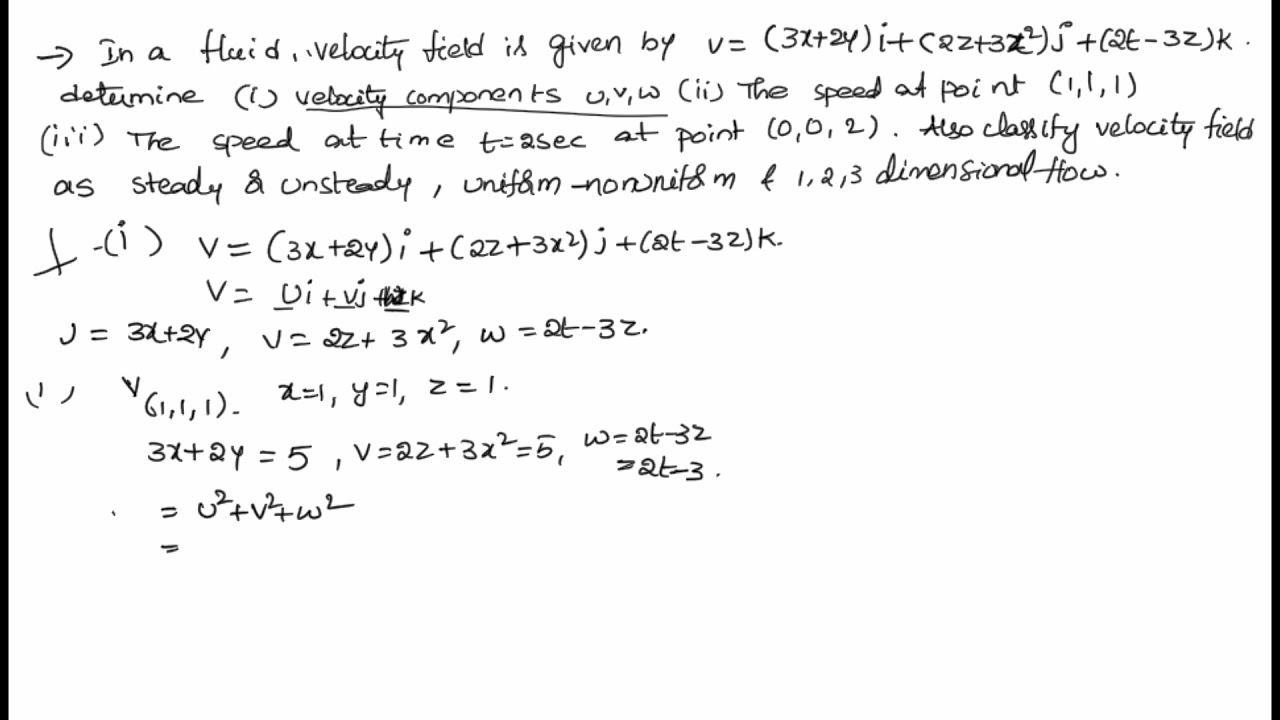 → In a fluid, velocity field is given by V = (3x+2y)i+(2z+3x²)j+(2t-3z)k.
determine (i) velocity components u,v,w (ii) The speed at point (1,1,1)
(iii) The speed at time t=2sec at point (0,0,2). Also classify velocity field
as steady & unsteady, uniform-nonuniform & 1,2,3 dimensional flow.
(i) V = (3x+2y)i+(2z+3x²)j+(2t-3z)k.
V = Ui+Vj+ k
U = 3x+2y, V = 2z+3x², w = 2t-3z.
V(1,1,1). x=1, y=1, z=1.
3x+2y = 5, V=2z+3x²=5, w=2t-3z
=2t-3.
= U²+V²+w²
=